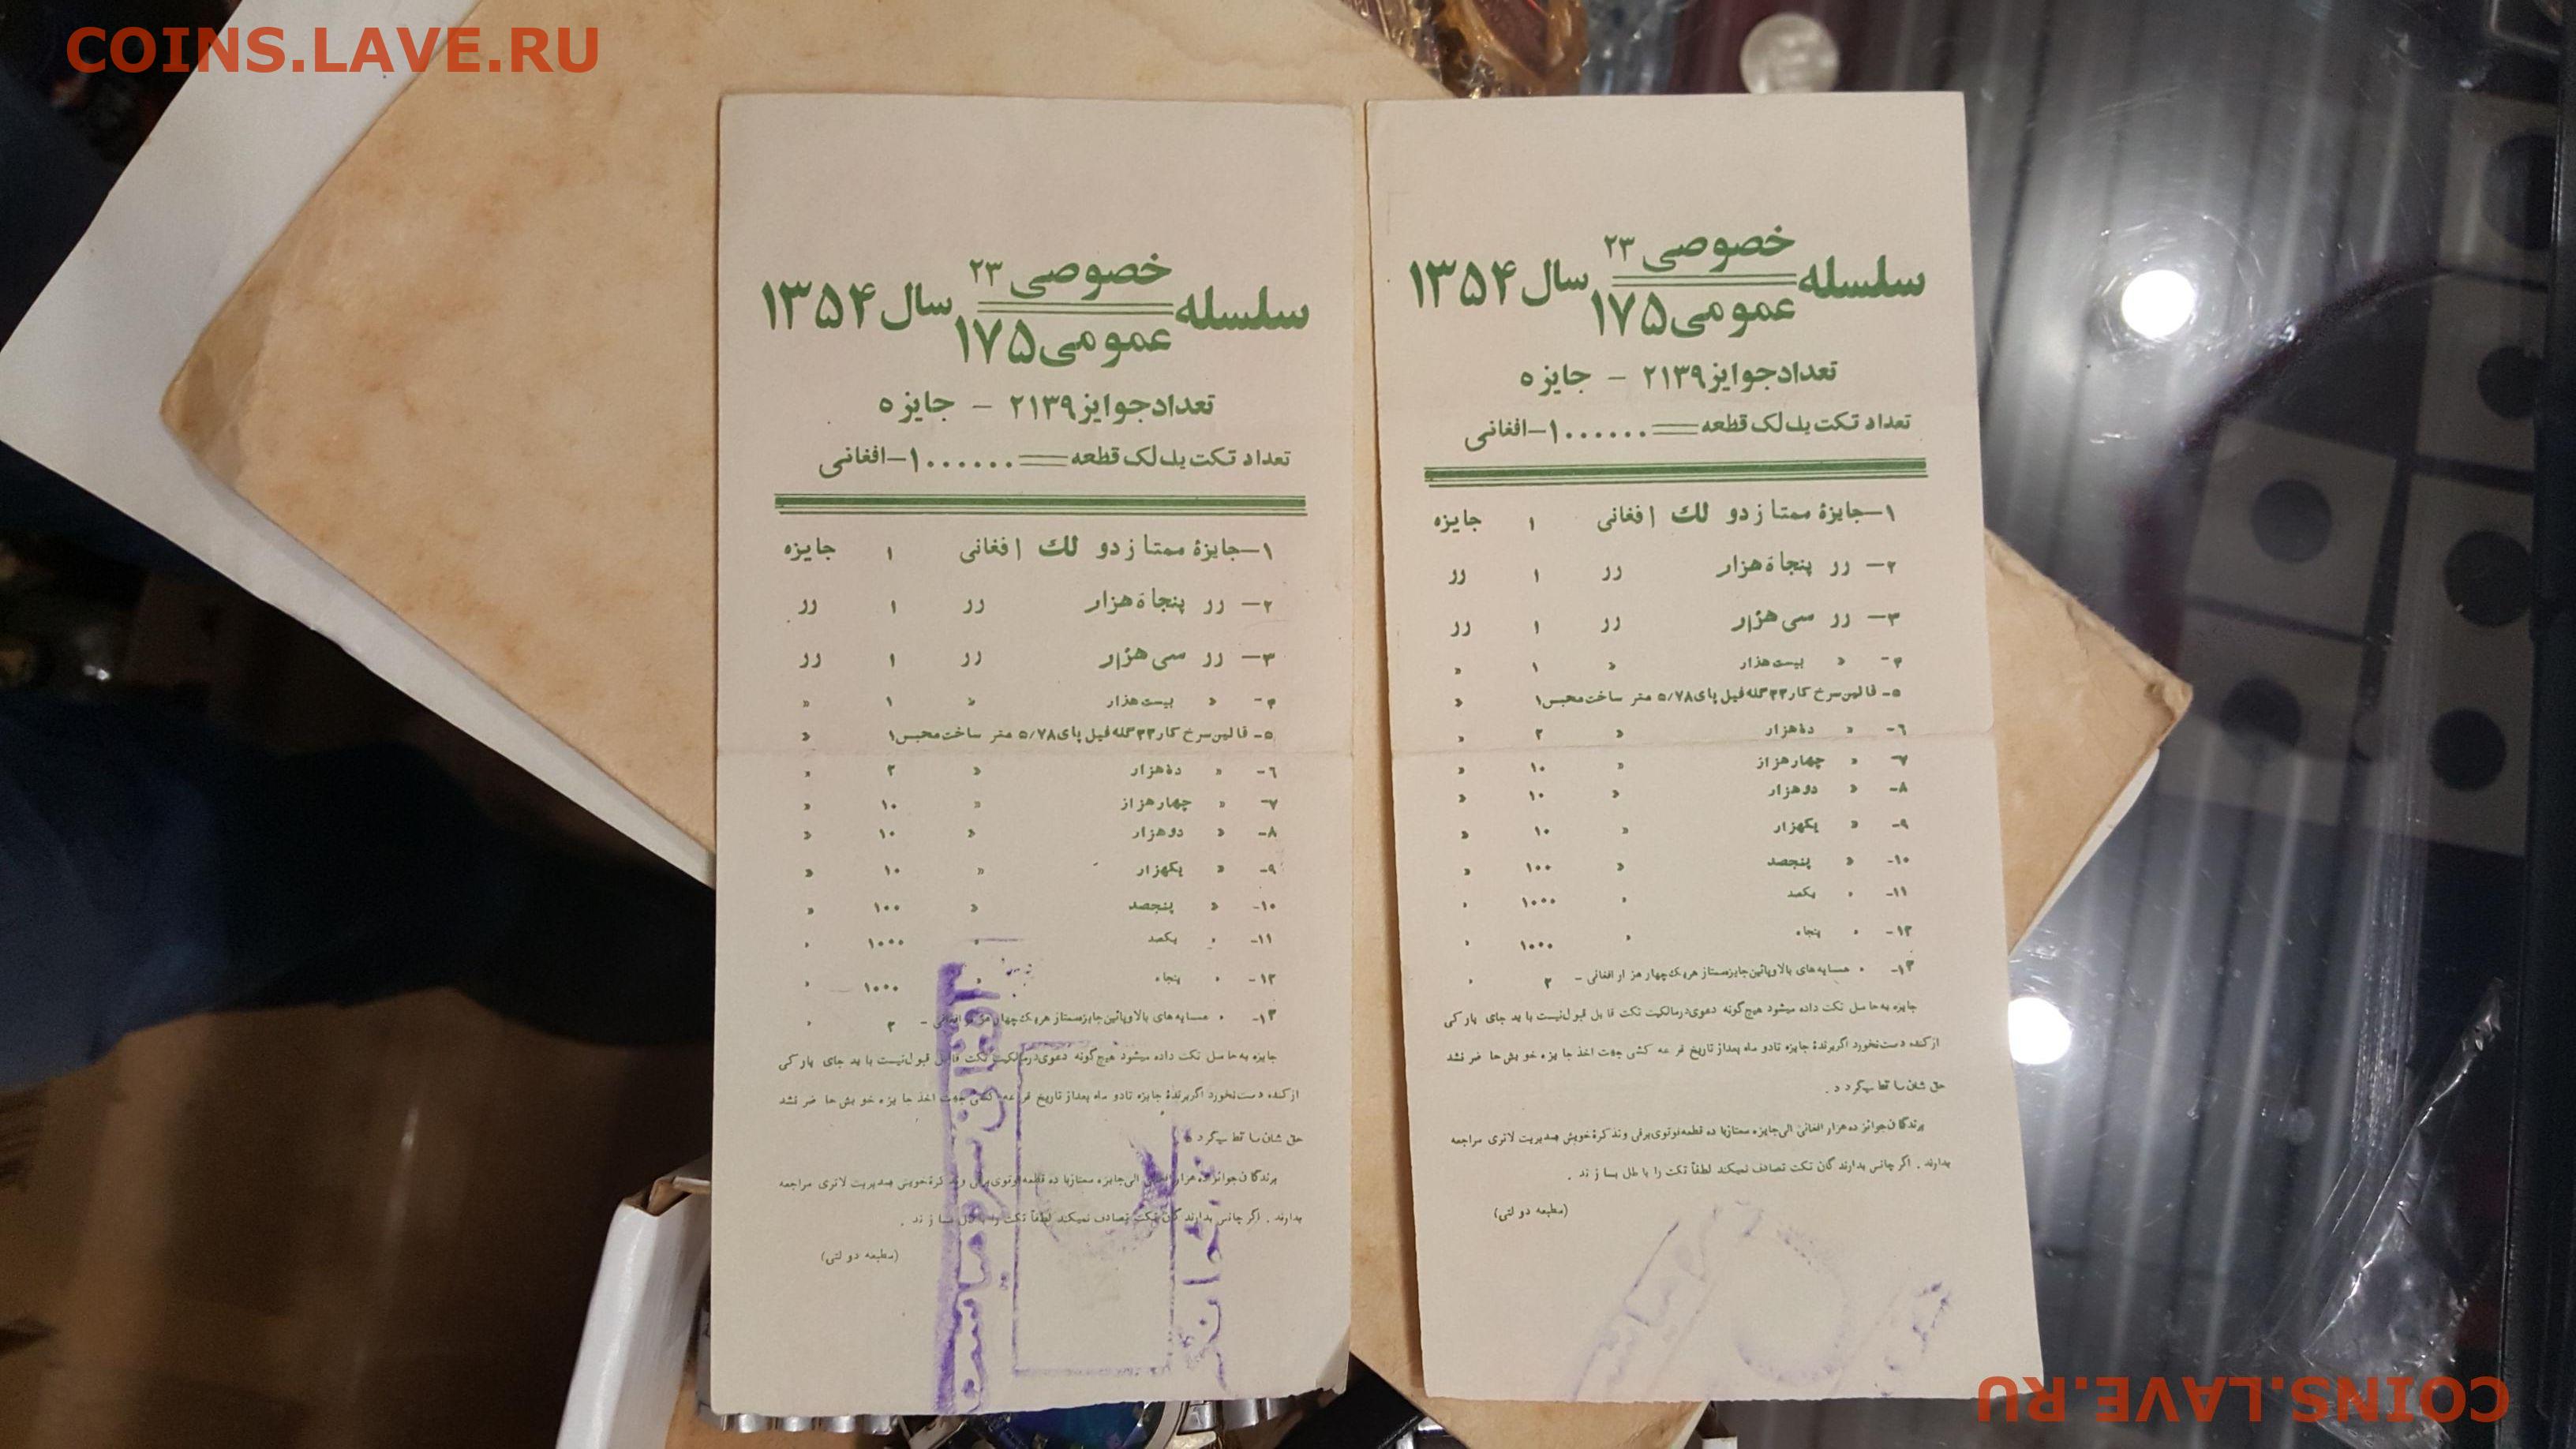 COINS.LAVE.RU
خصوصی ۲۳
سلسله سال ۱۳۵۴
عمومی ۱۷۵
تعداد جوایز ۲۱۳۹ – جایزه
تعداد تکت یک لک قطعه = ۱۰۰۰۰۰۰– افغانی
۱– جایزهٔ ممتاز دو لک افغانی ۱ جایزه
۲– رر پنجاه هزار رر ۱ رر
۳– رر سی هزار رر ۱ رر
۴– » بیست هزار » ۱ »
۵– قالین سرخ کار ۳۳ گله فیل پای ۵/۷۸ متر ساخت محبس ۱ »
۶– » ده هزار » ۲ »
۷– » چهار هزار » ۱۰ »
۸– » دو هزار » ۱۰ »
۹– » یکهزار » ۱۰ »
۱۰– » پنجصد » ۱۰۰ »
۱۱– » یکصد » ۱۰۰۰ »
۱۲– » پنجاه ۱۰۰۰ »
۱۳– » همسایه های بالا و پائین جایزه ممتاز هر یک چهار هزار افغانی – ۲ »
جایزه به حامل تکت داده میشود هیچ گونه دعوی در مالکیت تکت قابل قبول نیست باید جای پارکی
از کنده دست نخورد اگر برندهٔ جایزه تا دو ماه بعد از تاریخ قرعه کشی جهت اخذ جایزه خویش حاضر نشد
حق شان ساقط میگردد
برندگان جوائز ده هزار افغانی الی جایزه ممتاز با ده قطعه فوتوی برقی و تذکرهٔ خویش بمدیریت لاتری مراجعه
بدارند . اگر چانس بدارندگان تکت تصادف نمیکند لطفاً تکت را باطل بسازند .
(مطبعه دولتی)
خصوصی ۲۳
سلسله سال ۱۳۵۴
عمومی ۱۷۵
تعداد جوایز ۲۱۳۹ – جایزه
تعداد تکت یک لک قطعه = ۱۰۰۰۰۰۰– افغانی
۱– جایزهٔ ممتاز دو لک افغانی ۱ جایزه
۲– رر پنجاه هزار رر ۱ رر
۳– رر سی هزار رر ۱ رر
۴– » بیست هزار » ۱ »
۵– قالین سرخ کار ۳۳ گله فیل پای ۵/۷۸ متر ساخت محبس ۱ »
۶– » ده هزار » ۲ »
۷– » چهار هزار » ۱۰ »
۸– » دو هزار » ۱۰ »
۹– » یکهزار » ۱۰ »
۱۰– » پنجصد » ۱۰۰ »
۱۱– » یکصد » ۱۰۰۰ »
۱۲– » پنجاه » ۱۰۰۰ »
۱۳– » همسایه های بالا و پائین جایزه ممتاز هر یک چهار هزار افغانی – ۲ »
جایزه به حامل تکت داده میشود هیچ گونه دعوی در مالکیت تکت قابل قبول نیست باید جای پارکی
از کنده دست نخورد اگر برندهٔ جایزه تا دو ماه بعد از تاریخ قرعه کشی جهت اخذ جایزه خویش حاضر نشد
حق شان ساقط میگردد .
برندگان جوائز ده هزار افغانی الی جایزه ممتاز با ده قطعه فوتوی برقی و تذکرهٔ خویش بمدیریت لاتری مراجعه
بدارند . اگر چانس بدارندگان تکت تصادف نمیکند لطفاً تکت را باطل بسازند .
(مطبعه دولتی)
COINS.LAVE.RU